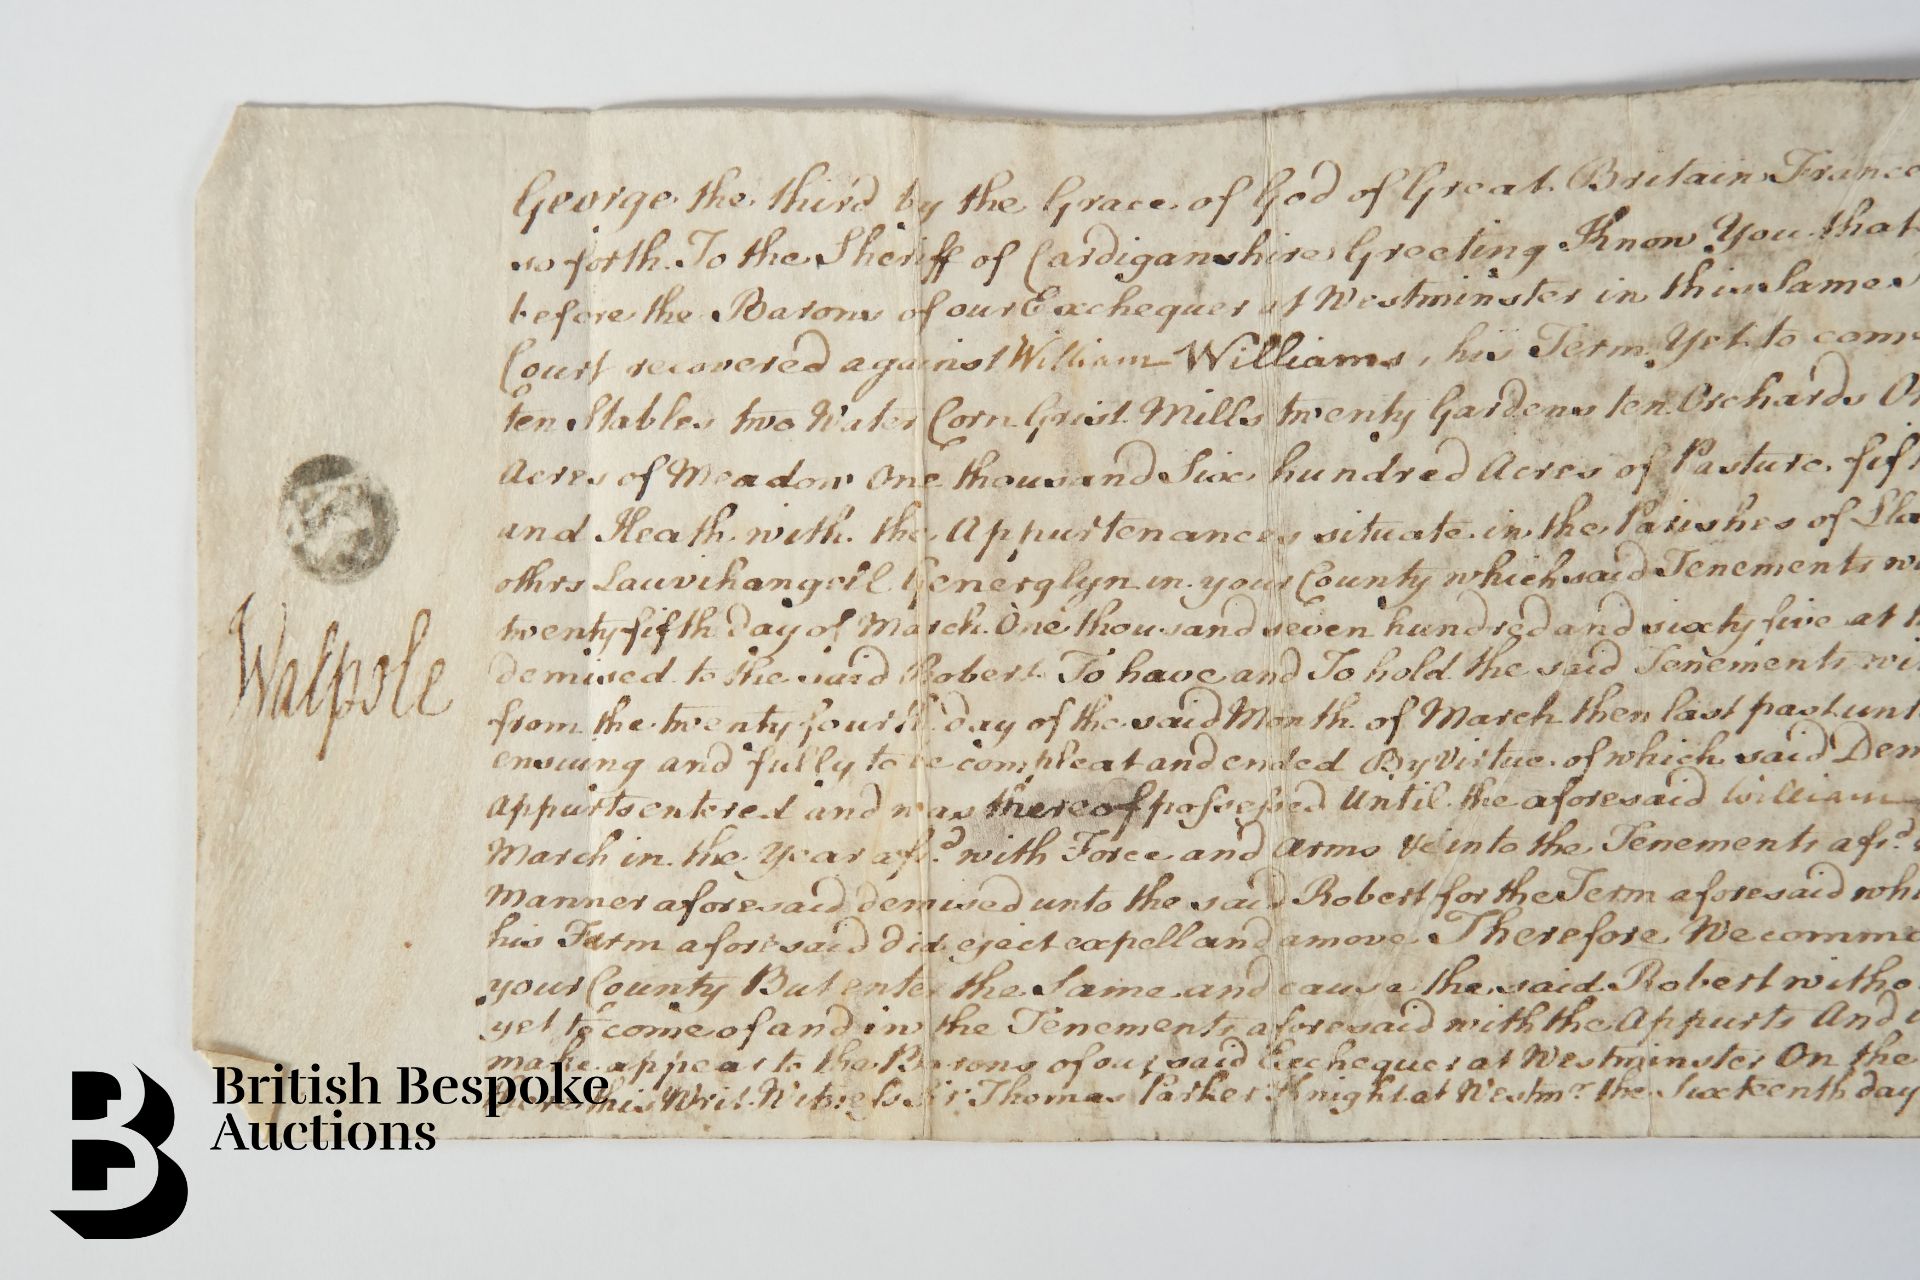 George the third by the Grace of God of Great Britain France
so forth To the Sheriff of Cardiganshire Greeting Know You that
before the Barons of our Exchequer at Westminster in this Same
Court recovered against William Williams his Term Yet to come
ten Stables two Water Corn Grist Mills twenty Gardens ten Orchards
Acres of Meadow One thousand Six hundred Acres of Pasture
and Heath with the Appurtenances situate in the Parishes of
othrs Lauvihangeil Generglyn in your County which said Tenements
twenty fifth day of March One thousand seven hundred and sixty five at
demised to the said Robert To have and To hold the said Tenements
from the twenty fourth day of the said Month of March then last past
ensuing and fully to be compleat and ended By virtue of which said
Appurts entered and was thereof possessed Until the aforesaid William
March in the Year afsd with Force and Arms &c into the Tenements afsd
Manner aforesaid demised unto the said Robert for the Term aforesaid
his Farm aforesaid did eject expell and amove Therefore We
your County But enter the Same and cause the said Robert
yet to come of and in the Tenements aforesaid with the Appurts And
make appear to the Barons of our said Exchequer at Westminster On the
there this Writ Witness Sir Thomas Parker Knight at Westmr the Sixteenth day
Walpole
British Bespoke
Auctions
B